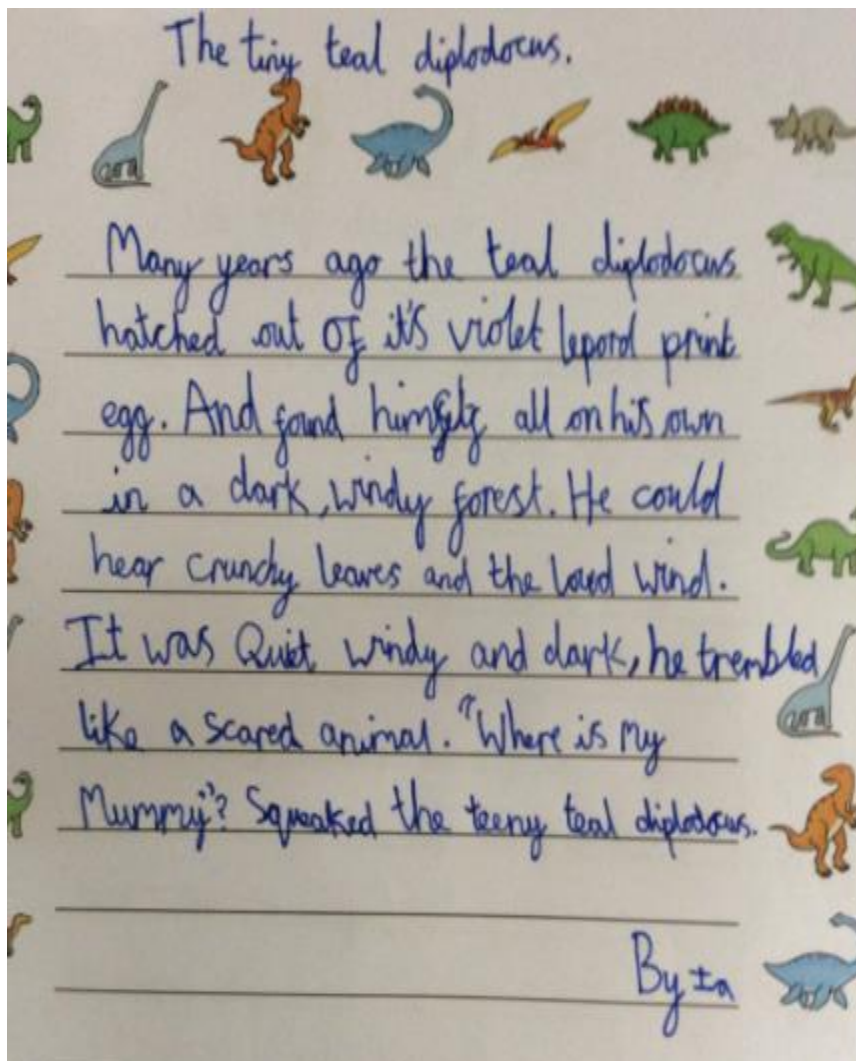 The tiny teal diplodocus.
Many years ago the teal diplodocus
hatched out of it's violet lepord print
egg. And found himself all on his own
in a dark, windy forest. He could
hear crunchy leaves and the loud wind.
It was Quiet windy and dark, he trembled
like a scared animal. "Where is my
Mummy"? Squeaked the teeny teal diplodocus.
By Ia